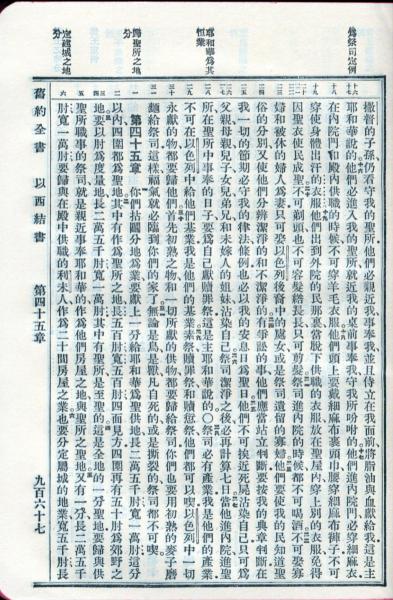 為祭司定例
耶和華為其恆業
歸聖所之地分
定建城之地分
撒督的子孫仍看守我的聖所他們必親近我事奉我並且侍立在我面前將脂油與血獻給我這是主
耶和華說的他們必進入我的聖所就近我的桌前事奉我守我所吩咐的他們進內院門必穿細麻衣
在內院門和殿內供職的時候不可穿羊毛衣服他們頭上要戴細麻布裹頭巾腰穿細麻布褲子不可
穿使身體出汗的衣服他們出到外院的民那裏當脫下供職的衣服放在聖屋內穿上別的衣服免得
因聖衣使民成聖不可剃頭也不可容髮綹長長只可剪髮祭司進內院的時候都不可喝酒不可娶寡
婦和被休的婦人為妻只可娶以色列後裔中的處女或是祭司遺留的寡婦他們要使我的民知道聖
俗的分別又使他們分辨潔淨的和不潔淨的有爭訟的事他們應當站立判斷要按我的典章判斷在
我一切的節期必守我的律法條例也必以我的安息日為聖日他們不可挨近死屍沾染自己只可為
父親母親兒子女兒弟兄和未嫁人的姐妹沾染自己祭司潔淨之後必再計算七日當他進內院進聖
所在聖所中事奉的日子要為自己獻贖罪祭這是主耶和華說的○祭司必有產業我是他們的產業
不可在以色列中給他們基業我是他們的基業素祭贖罪祭和贖愆祭他們都可以喫以色列中一切
永獻的物都要歸他們首先初熟之物和一切所獻的供物都要歸給祭司你們也要用初熟的麥子磨
麵給祭司這樣福氣就必臨到你們的家了無論是鳥是獸凡自死的或是撕裂的祭司都不可喫
第四十五章 你們拈鬮分地為業要獻上一分給耶和華為聖供地長二萬五千肘寬一萬肘這分
以內四圍都為聖地其中有作為聖所之地長五百肘寬五百肘四面見方四圍再有五十肘為郊野之
地要以肘為度量地長二萬五千肘寬一萬肘其中有聖所是至聖的這是全地的一分聖地要歸與供
聖所職事的祭司就是親近事奉耶和華的作為他們房屋之地與聖所之聖地又有一分長二萬五千
肘寬一萬肘要歸與在殿中供職的利未人作為二十間房屋之業也要分定屬城的地業寬五千肘長
舊約全書 以西結書 第四十五章 九百六十七